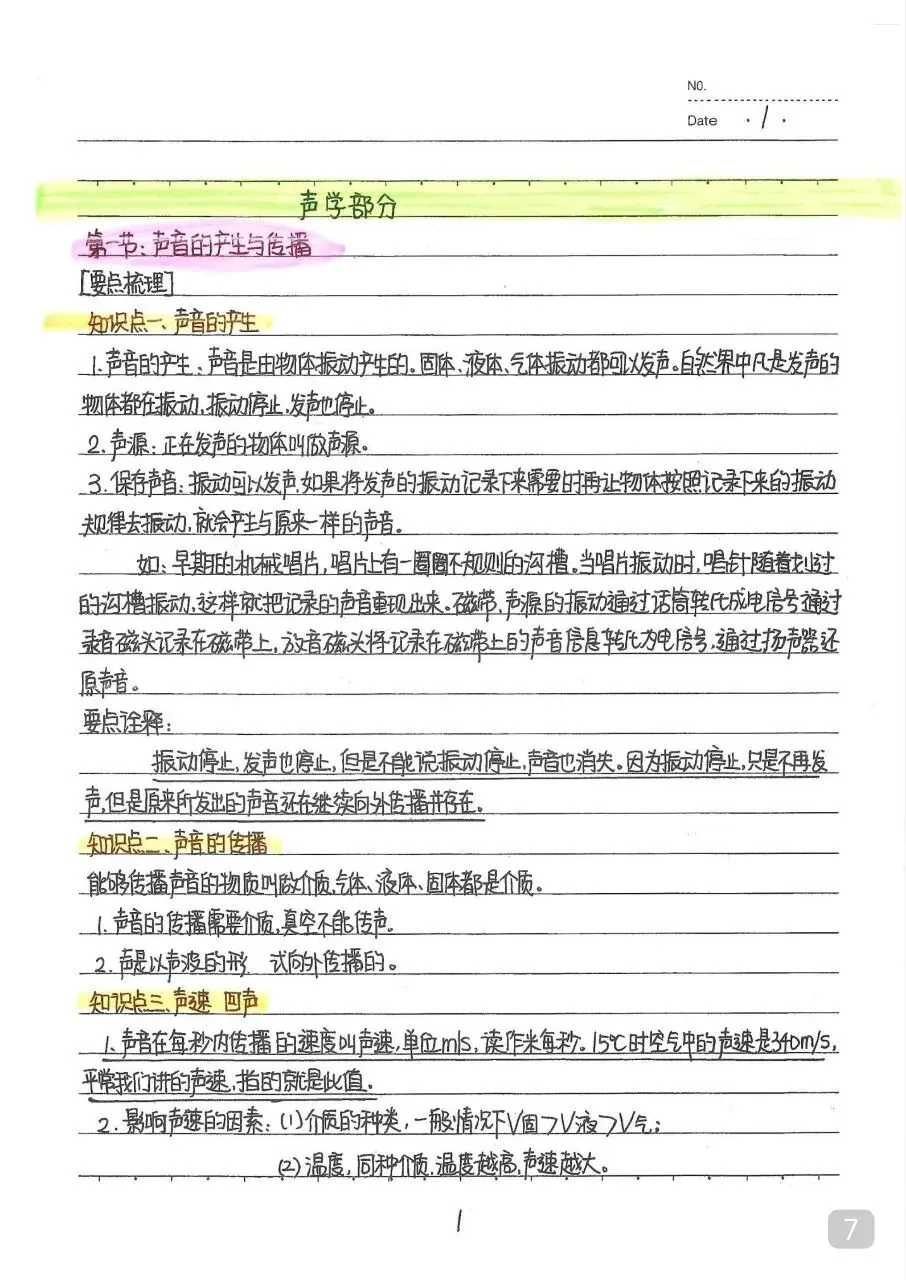 NO.
Date ·1·
声学部分
第一节:声音的产生与传播
[要点梳理]
知识点一、声音的产生
1.声音的产生:声音是由物体振动产生的。固体、液体、气体振动都可以发声。自然界中凡是发声的
物体都在振动,振动停止,发声也停止。
2.声源:正在发声的物体叫做声源。
3.保存声音:振动可以发声,如果将发声的振动记录下来需要时再让物体按照记录下来的振动
规律去振动,就会产生与原来一样的声音。
如:早期的机械唱片,唱片上有一圈圈不规则的沟槽。当唱片振动时,唱针随着划过
的沟槽振动,这样就把记录的声音重现出来。磁带,声源的振动通过话筒转化成电信号通过
录音磁头记录在磁带上,放音磁头将记录在磁带上的声音信息转化为电信号,通过扬声器还
原声音。
要点诠释:
振动停止,发声也停止,但是不能说振动停止,声音也消失。因为振动停止,只是不再发
声,但是原来所发出的声音还在继续向外传播并存在。
知识点二、声音的传播
能够传播声音的物质叫做介质,气体、液体、固体都是介质。
1.声音的传播需要介质,真空不能传声。
2.声是以声波的形 式向外传播的。
知识点三、声速 回声
1.声音在每秒内传播的速度叫声速,单位m/s,读作米每秒。15℃时空气中的声速是340m/s,
平常我们讲的声速,指的就是此值。
2.影响声速的因素:(1)介质的种类,一般情况下V固>V液>V气;
(2)温度,同种介质,温度越高,声速越大。
1
7